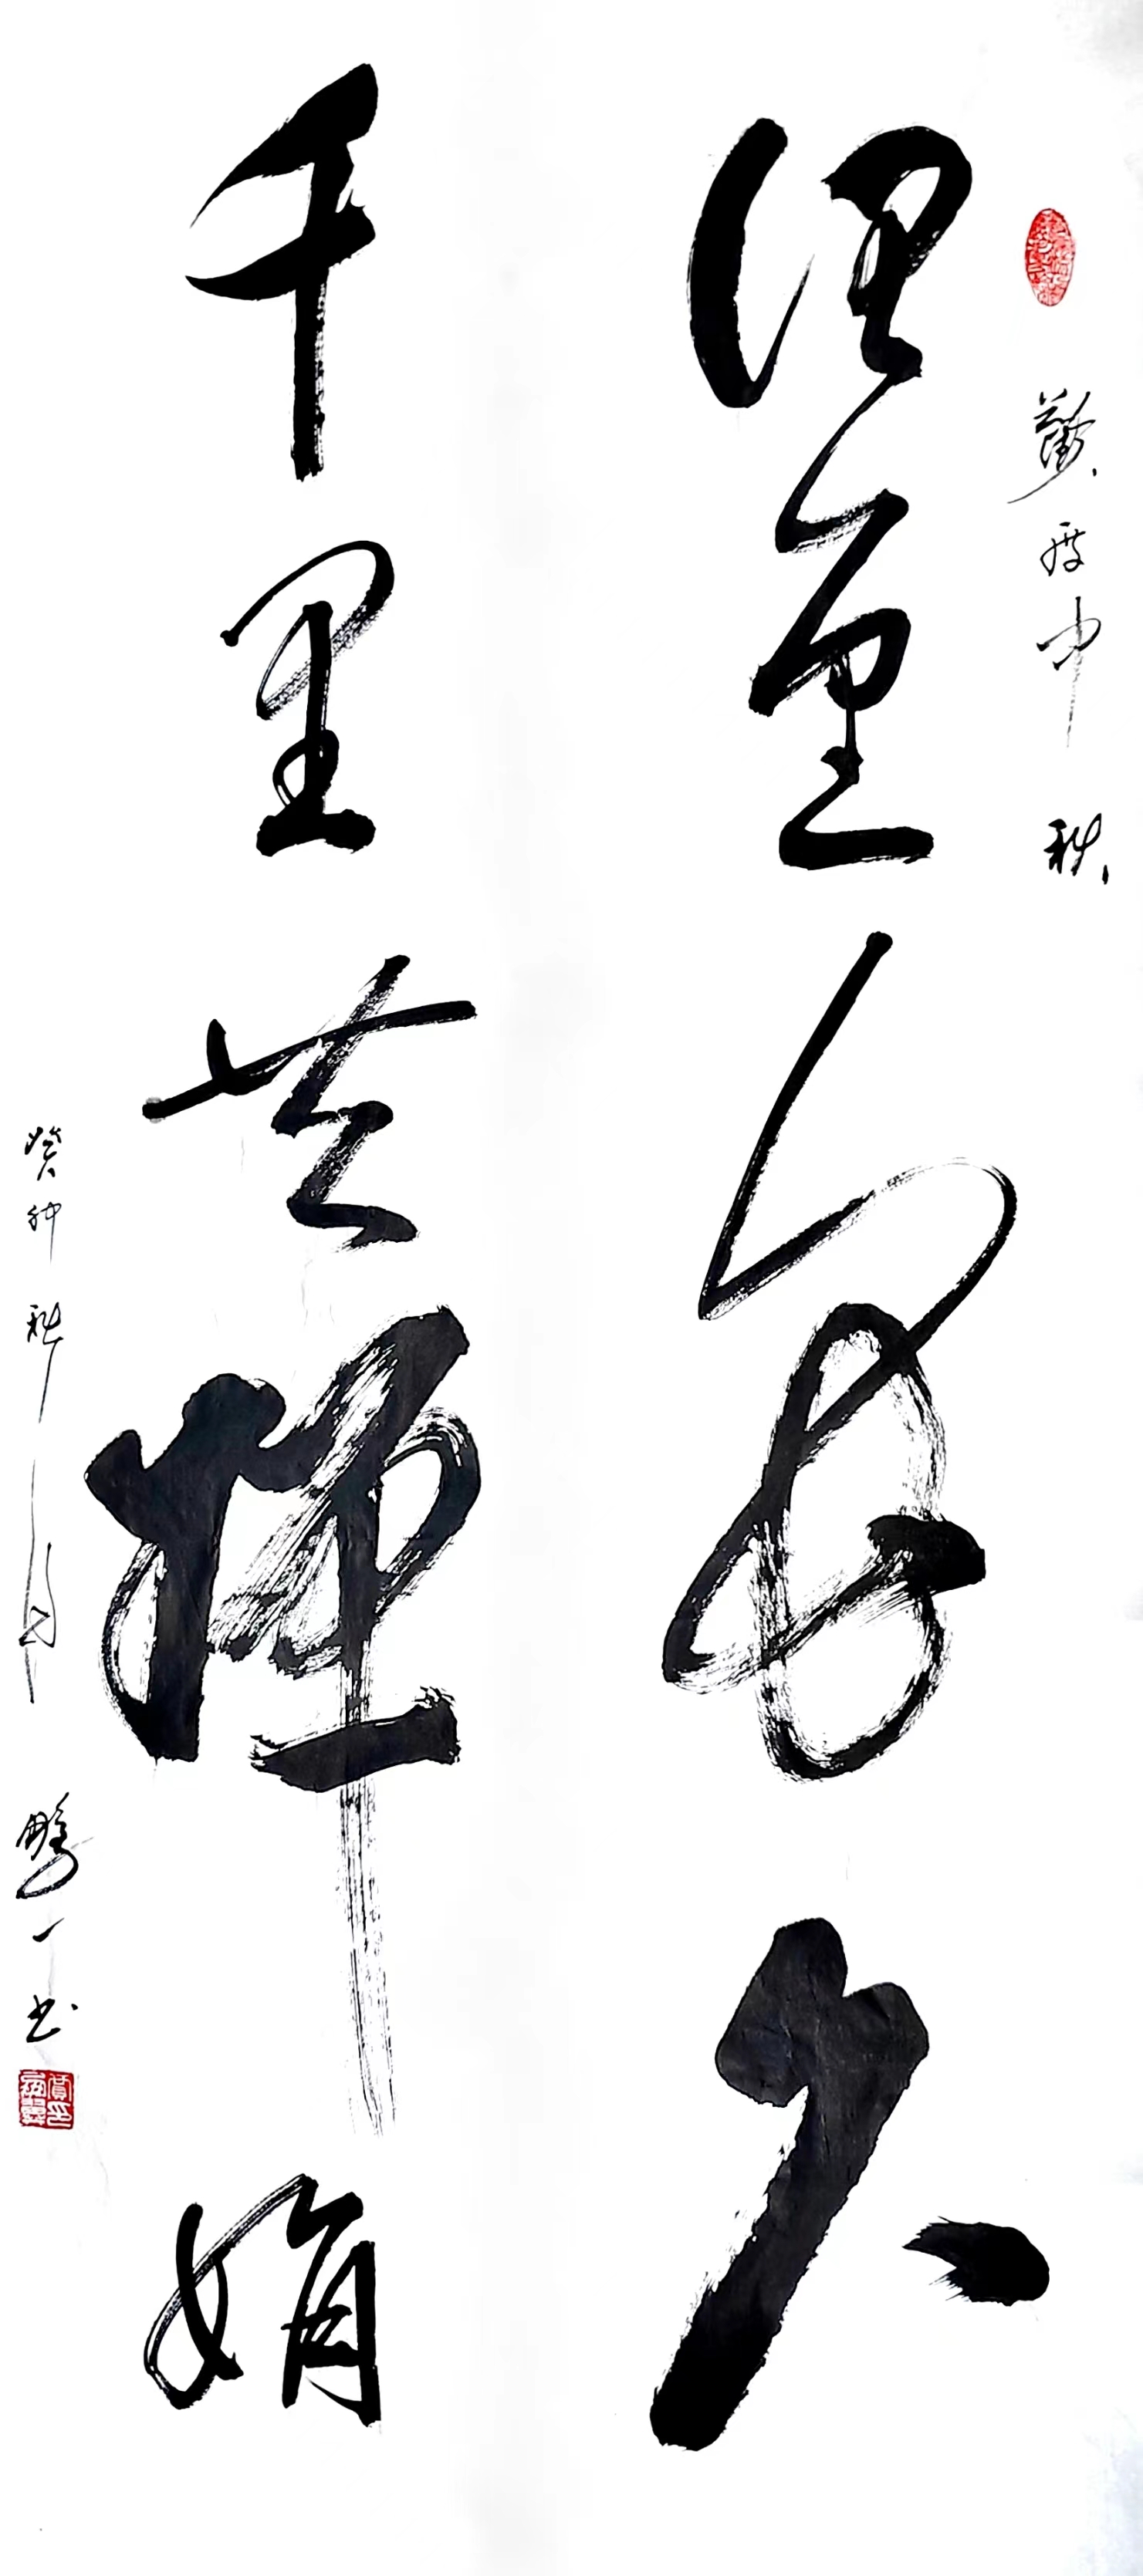 欢度中秋
但愿人长久
千里共婵娟
癸卯秋月
一书